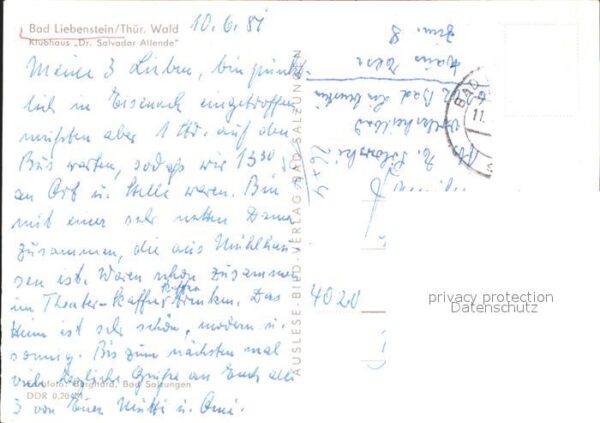 Bad Liebenstein/Thür. Wald
Klubhaus „Dr. Salvador Allende"
10.6.81
Meine 3 Lieben, bin pünkt-
lich in Eisenach eingetroffen
mußten aber 1 Std. auf den
Bus warten, sodaß wir 13³⁰
an Ort u. Stelle waren. Bin
mit einer sehr netten Dame
zusammen, die aus Mühlhau-
sen ist. Waren schon zusammen
im Theater-Kaffee Kaffee trinken. Das
Heim ist sehr schön, modern u.
sonnig. Bis zum nächsten mal
viele herzliche Grüße an Euch alle
3 von Eurer Mutti u. Omi.
Foto: Burghard, Bad Salzungen
DDR 0,20 M
AUSLESE-BILD-VERLAG BAD SALZUNGEN
Abs.
Bad Liebenstein
Zim. 8
BAD
11.
4020
privacy protection
Datenschutz